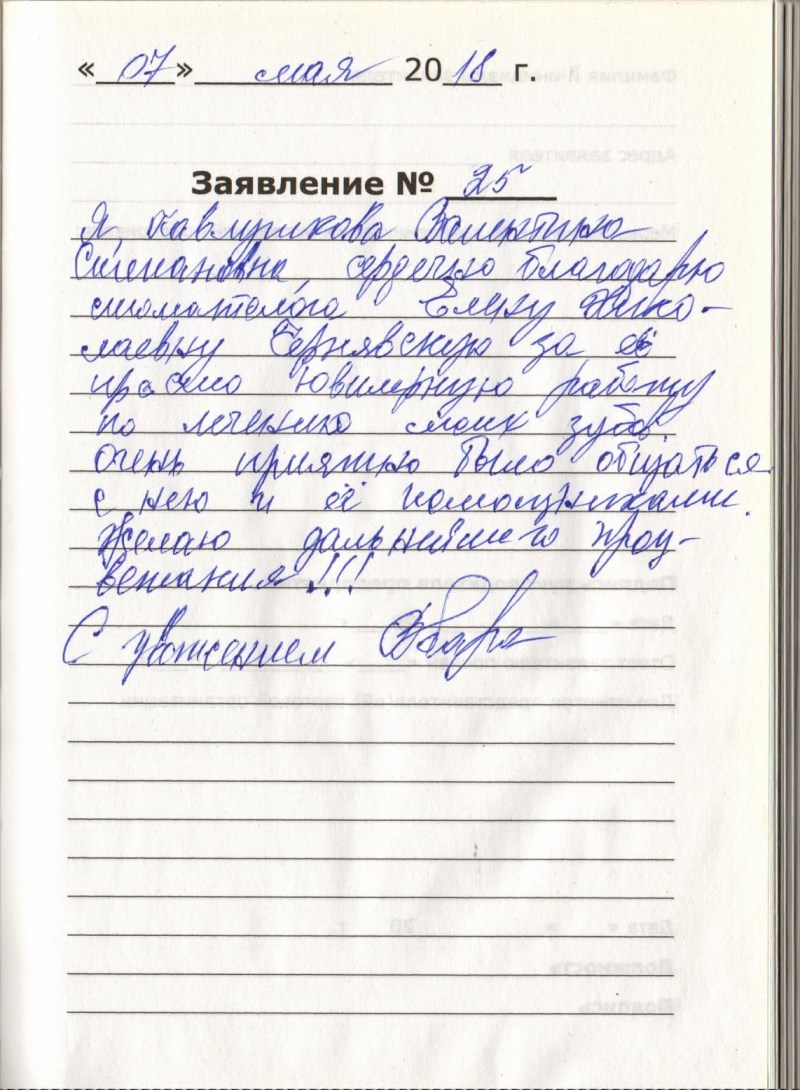 « 07 » мая 2018 г.
Заявление № 25
Я, Валентина
Степановна, сердечно благодарю
стоматолога Елену Нико-
лаевну Чернявскую за её
прямо ювелирную работу
по лечению моих зубов.
Очень приятно было общаться
с нею и её помощниками.
Желаю дальнейшего проц-
ветания!!!
С уважением